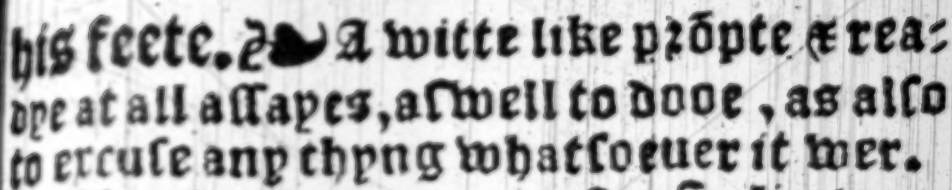 his feete. ☙ A witte like prõpte & rea-
dye at all aſſayes, aſwell to dooe, as alſo
to excuſe any thyng whatſoeuer it wer.